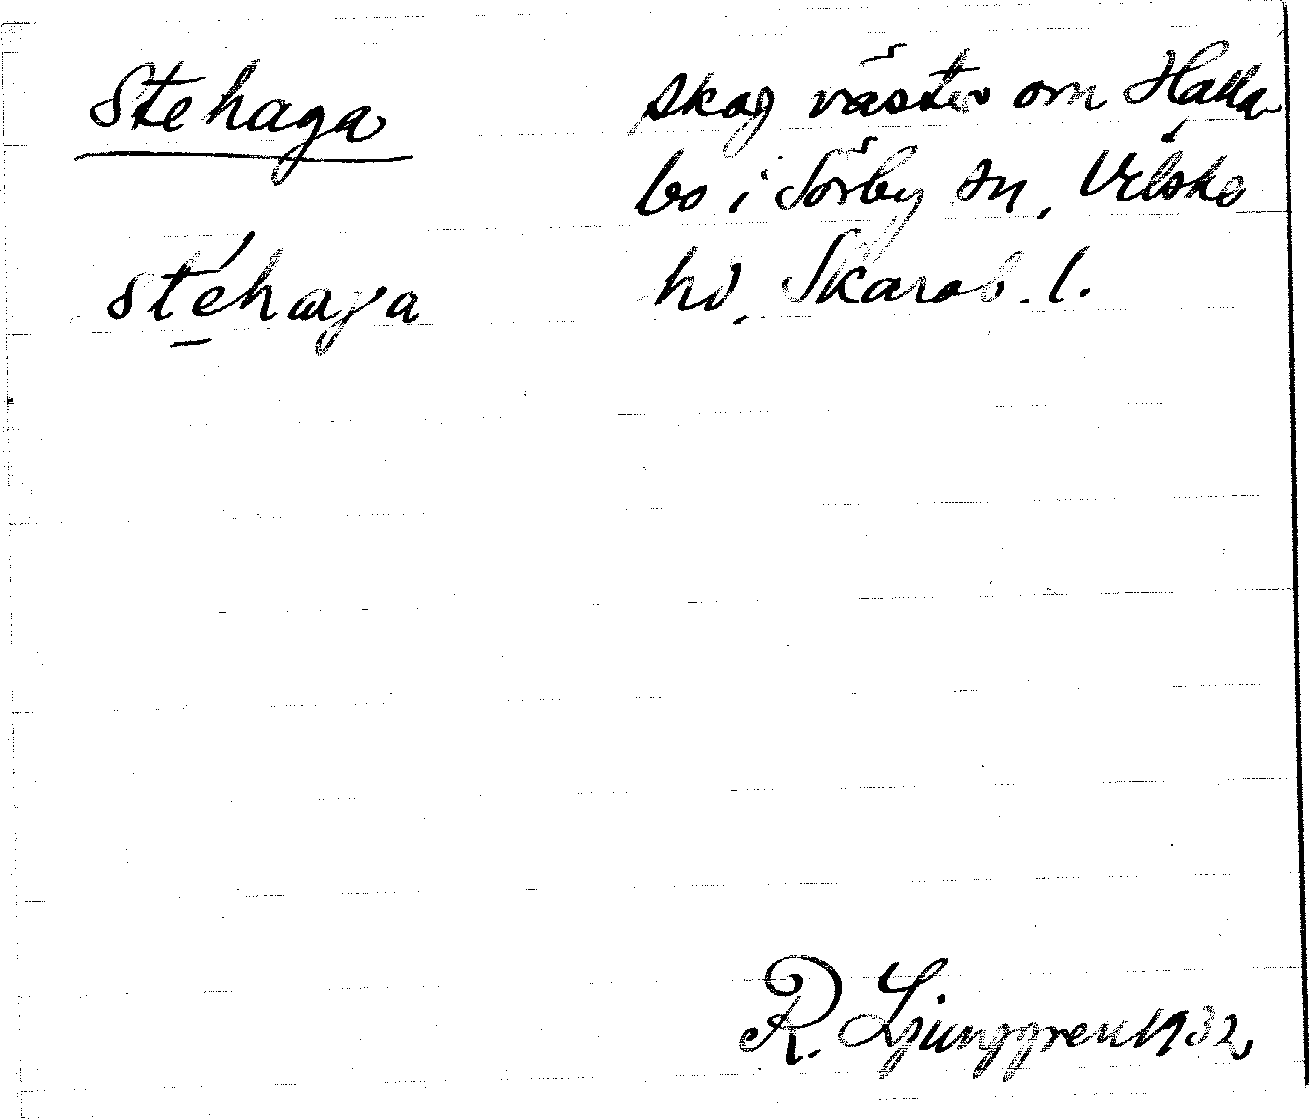 Stehaga
skog väster om Halla-
bo i Sörby sn, Vilske
hd, Skarab. l.
stéhaga
R. Ljunggren 1932